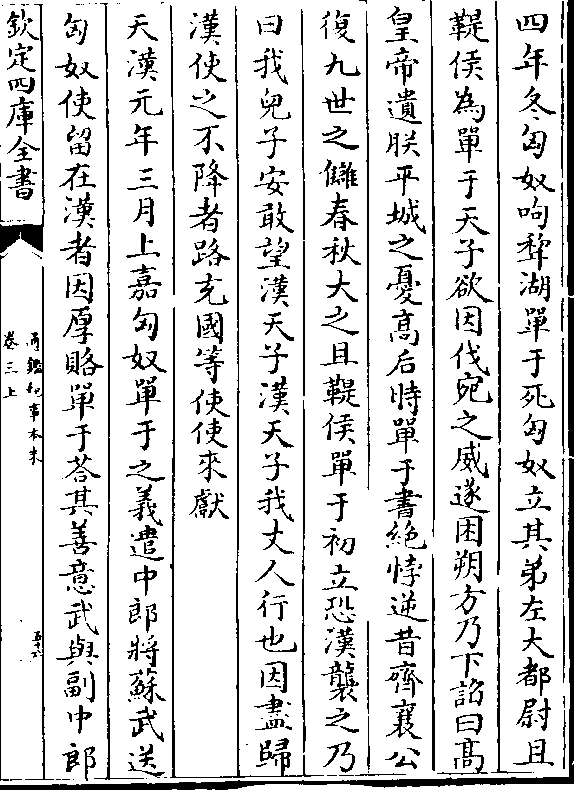 四年冬匈奴呴犂湖單于死匈奴立其弟左大都尉且
鞮侯為單于天子欲因伐宛之威遂困朔方乃下詔曰髙
皇帝遺朕平城之憂髙后時單于書絶悖逆昔齊襄公
復九世之讎春秋大之且鞮侯單于初立恐漢襲之乃
曰我兒子安敢望漢天子漢天子我丈人行也因盡歸
漢使之不降者路充國等使使來獻
天漢元年三月上嘉匈奴單于之義遣中郎將蘇武送
匈奴使留在漢者因厚賂單于荅其善意武與副中郎
欽定四庫全書
通鑑紀事本末
卷三上
五十六